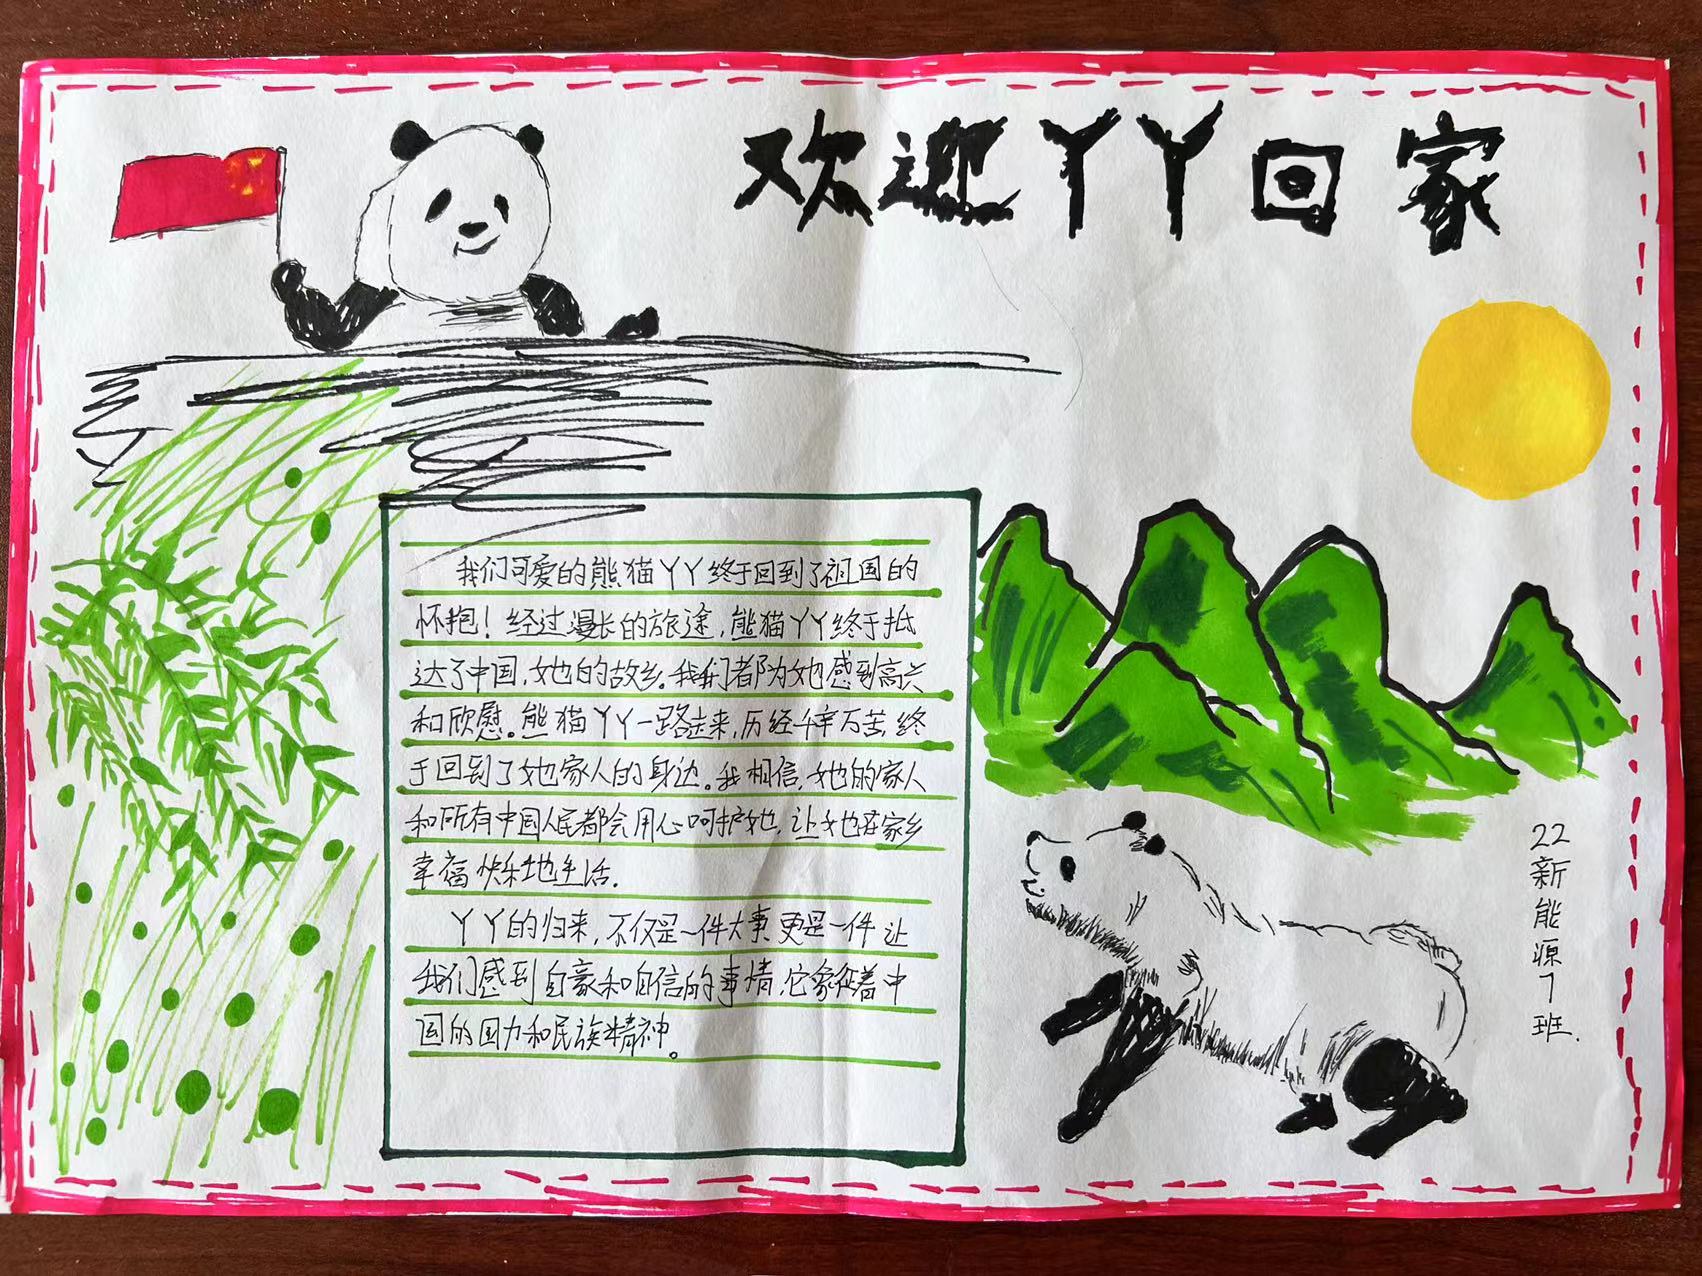 欢迎丫丫回家
我们可爱的熊猫丫丫终于回到了祖国的
怀抱！经过漫长的旅途，熊猫丫丫终于抵
达了中国，她的故乡。我们都为她感到高兴
和欣慰。熊猫丫丫一路走来，历经千辛万苦，终
于回到了她家人的身边。我相信，她的家人
和所有中国人民都会用心呵护她，让她在家乡
幸福快乐地生活.
丫丫的归来，不仅是一件大事更是一件让
我们感到自豪和自信的事情，它象征着中
国的国力和民族精神。
22新能源7班.